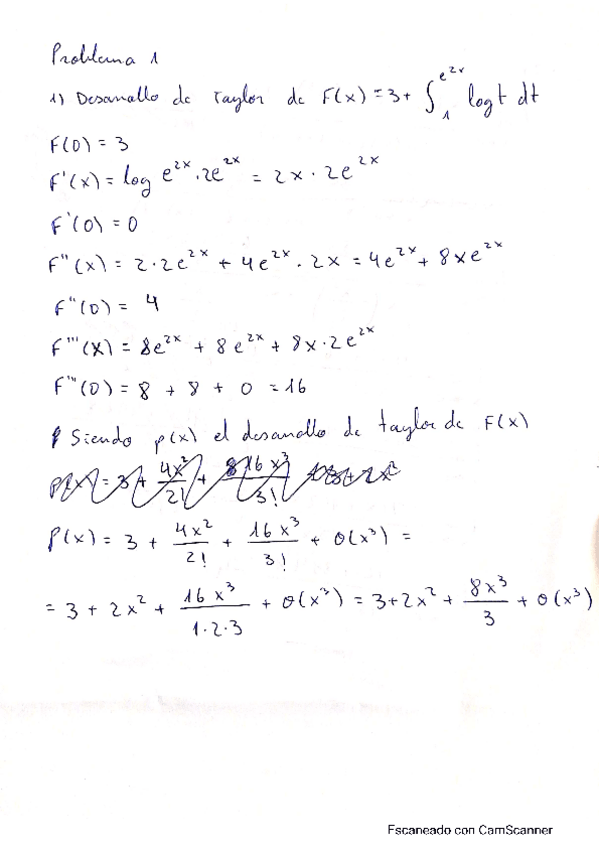 Problema 1
1) Desarrollo de Taylor de F(x) = 3 + ∫₁^{e^{2x}} log t dt
F(0) = 3
F'(x) = log e^{2x} · 2e^{2x} = 2x · 2e^{2x}
F'(0) = 0
F''(x) = 2·2e^{2x} + 4e^{2x} · 2x = 4e^{2x} + 8xe^{2x}
F''(0) = 4
F'''(x) = 8e^{2x} + 8e^{2x} + 8x·2e^{2x}
F'''(0) = 8 + 8 + 0 = 16
Siendo p(x) el desarrollo de taylor de F(x)
p(x) = 3 + 4x²/2! + 16x³/3!
P(x) = 3 + 4x²/2! + 16x³/3! + O(x³) =
= 3 + 2x² + 16x³/1·2·3 + O(x³) = 3+2x² + 8x³/3 + O(x³)
Escaneado con CamScanner